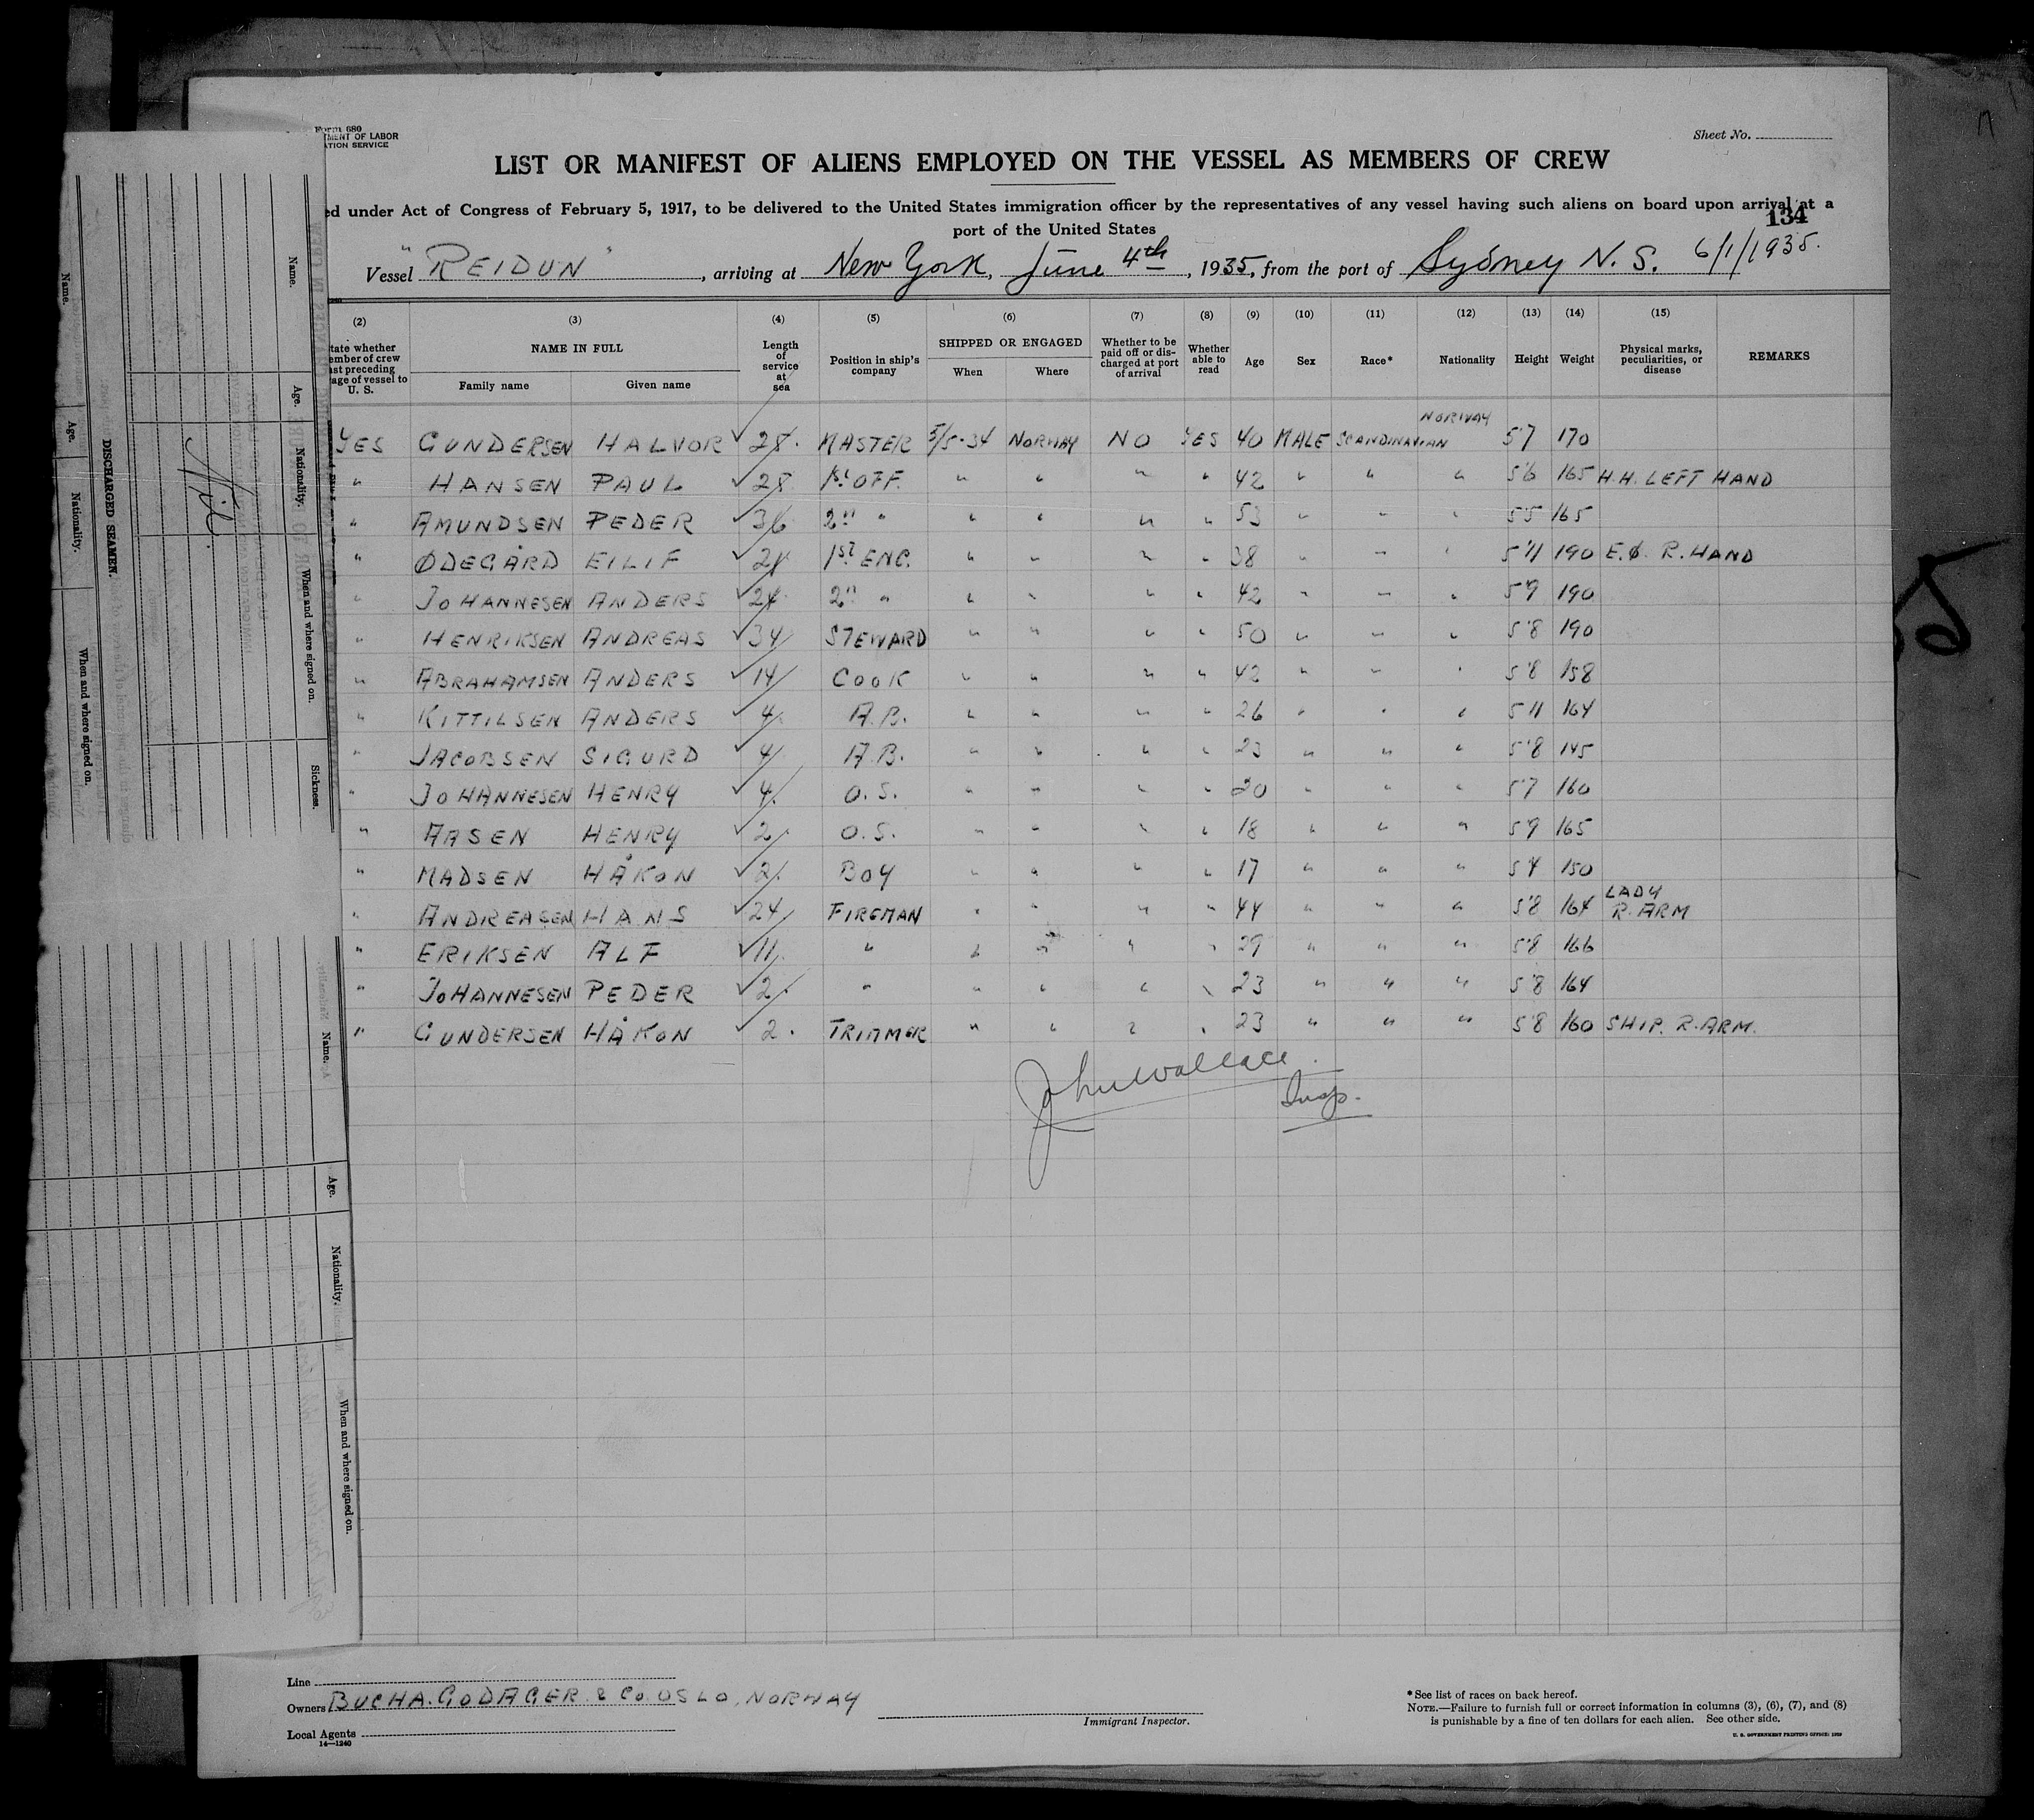 Form 680
TMENT OF LABOR
ATION SERVICE
Sheet No.
LIST OR MANIFEST OF ALIENS EMPLOYED ON THE VESSEL AS MEMBERS OF CREW
ed under Act of Congress of February 5, 1917, to be delivered to the United States immigration officer by the representatives of any vessel having such aliens on board upon arrival at a
port of the United States
134
Vessel "REIDUN", arriving at New York, June 4th, 1935, from the port of Sydney N. S. 6/1/1935.
(2) (3) (4) (5) (6) (7) (8) (9) (10) (11) (12) (13) (14) (15)
tate whether ember of crew ast preceding age of vessel to U. S. NAME IN FULL Family name Given name Length of service at sea Position in ship's company SHIPPED OR ENGAGED When Where Whether to be paid off or discharged at port of arrival Whether able to read Age Sex Race* Nationality Height Weight Physical marks, peculiarities, or disease REMARKS
NORWAY
YES GUNDERSEN HALVOR 28. MASTER 5/5-34 NORWAY NO YES 40 MALE SCANDINAVIAN 5'7 170
" HANSEN PAUL 28 1st OFF. " " " " 42 " " " 5'6 165 H.H. LEFT HAND
" AMUNDSEN PEDER 36 2" " " " " " 53 " " " 5'5 165
" ØDEGÅRD EILIF 21 1st ENG. " " " " 38 " " " 5'11 190 E.Ø. R. HAND
" JOHANNESEN ANDERS 24 2" " " " " " 42 " " " 5'9 190
" HENRIKSEN ANDREAS 34 STEWARD " " " " 50 " " " 5'8 190
" ABRAHAMSEN ANDERS 14 COOK " " " " 42 " " " 5'8 158
" KITTILSEN ANDERS 4 A.B. " " " " 26 " " " 5'11 164
" JACOBSEN SIGURD 4 A.B. " " " " 23 " " " 5'8 145
" JOHANNESEN HENRY 4 O.S. " " " " 20 " " " 5'7 160
" AASEN HENRY 2 O.S. " " " " 18 " " " 5'9 165
" MADSEN HÅKON 2 BOY " " " " 17 " " " 5'4 150
" ANDREASEN HANS 24 FIREMAN " " " " 44 " " " 5'8 164 LADY R. ARM
" ERIKSEN ALF 11 " " " " " 29 " " " 5'8 166
" JOHANNESEN PEDER 2 " " " " " 23 " " " 5'8 164
" GUNDERSEN HÅKON 2 TRIMMER " " " " 23 " " " 5'8 160 SHIP. R. ARM.
John Wallace
Insp.
Line
Owners BUCHA. GODAGER & Co. OSLO, NORWAY
Local Agents
14—1240
Immigrant Inspector.
*See list of races on back hereof.
NOTE.—Failure to furnish full or correct information in columns (3), (6), (7), and (8)
is punishable by a fine of ten dollars for each alien. See other side.
Name.
Age.
Nationality.
When and where signed on.
DISCHARGED SEAMEN.
Nil.
Name.
Age.
Nationality.
When and where signed on.
Sickness.
Name.
Age.
Nationality.
When and where signed on.